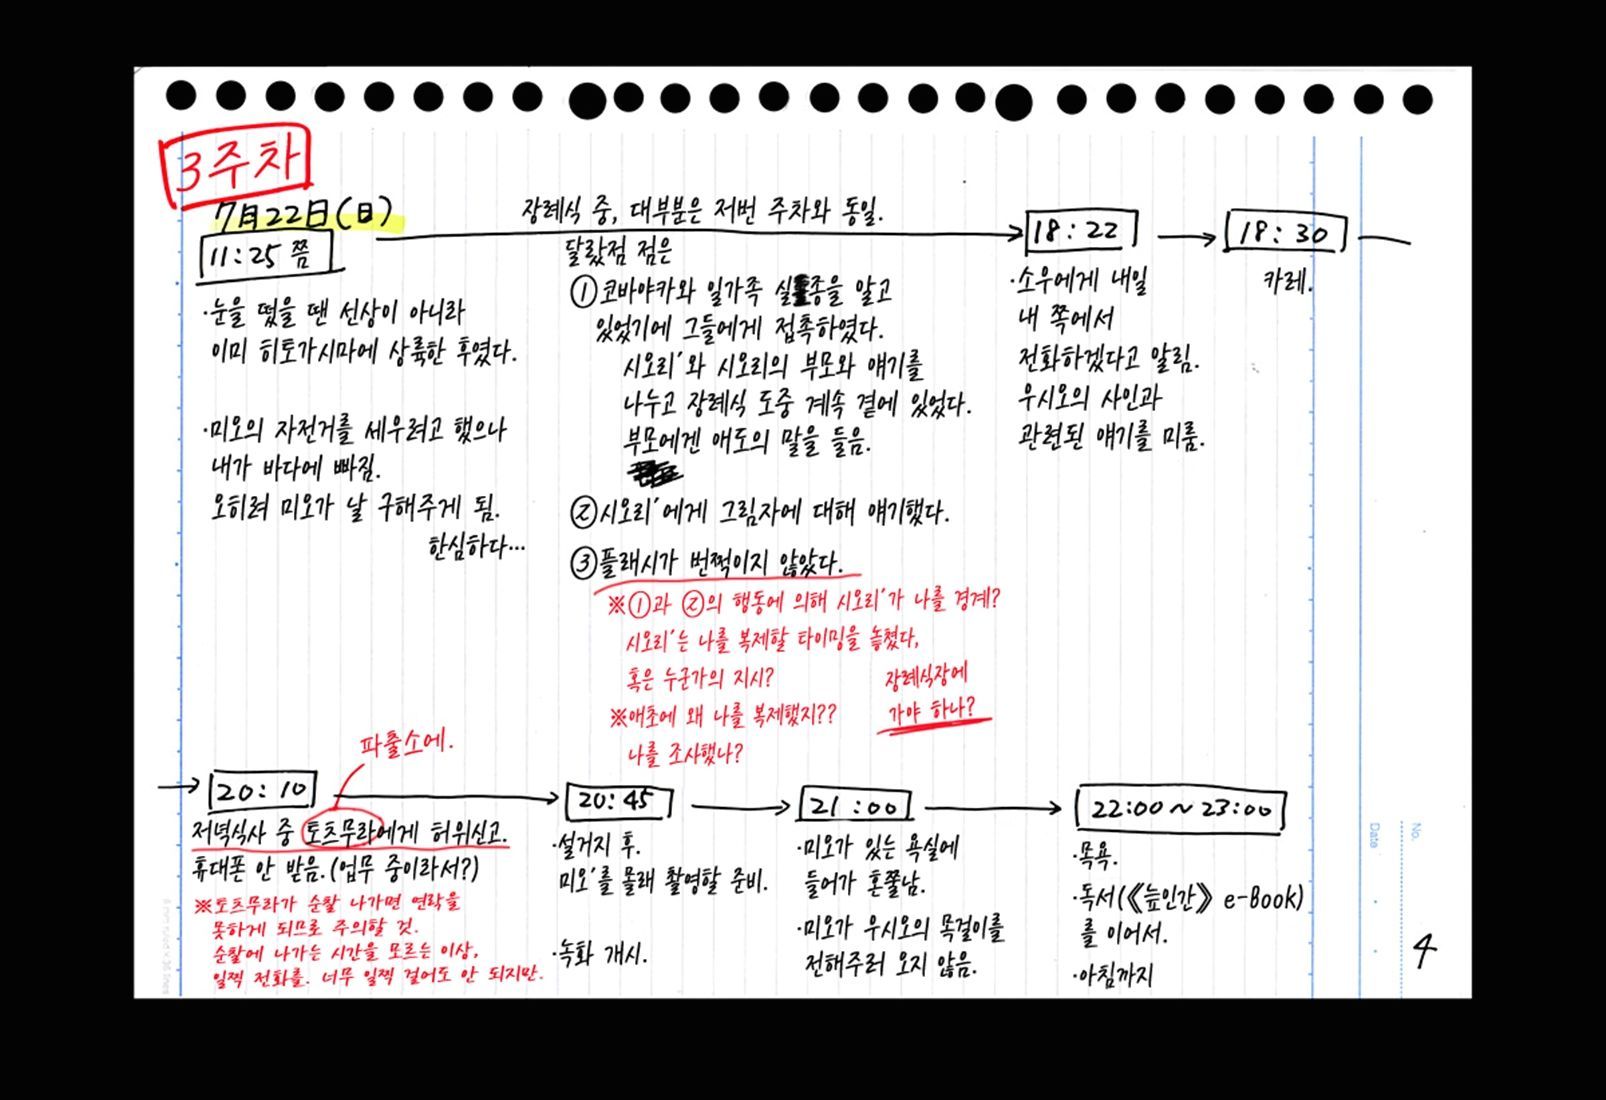 3주차
7月22日(日)
11:25 쯤
·눈을 떴을 땐 선상이 아니라
이미 히토가시마에 상륙한 후였다.
·미오의 자전거를 세우려고 했으나
내가 바다에 빠짐.
오히려 미오가 날 구해주게 됨.
한심하다…
장례식 중, 대부분은 저번 주차와 동일.
달랐점 점은
①코바야카와 일가족 실종을 알고
있었기에 그들에게 접촉하였다.
시오리′와 시오리의 부모와 얘기를
나누고 장례식 도중 계속 곁에 있었다.
부모에겐 애도의 말을 들음.
②시오리′에게 그림자에 대해 얘기했다.
③플래시가 번쩍이지 않았다.
※①과 ②의 행동에 의해 시오리′가 나를 경계?
시오리′는 나를 복제할 타이밍을 놓쳤다,
혹은 누군가의 지시?
※애초에 왜 나를 복제했지??
나를 조사했나?
장례식장에
가야 하나?
18:22
·소우에게 내일
내 쪽에서
전화하겠다고 알림.
우시오의 사인과
관련된 얘기를 미룸.
18:30
카레.
파출소에.
20:10
저녁식사 중 토츠무라에게 허위신고.
휴대폰 안 받음.(업무 중이라서?)
※토츠무라가 순찰 나가면 연락을
못하게 되므로 주의할 것.
순찰에 나가는 시간을 모르는 이상,
일찍 전화를. 너무 일찍 걸어도 안 되지만.
20:45
·설거지 후.
미오′를 몰래 촬영할 준비.
·녹화 개시.
21:00
·미오가 있는 욕실에
들어가 혼쭐남.
·미오가 우시오의 목걸이를
전해주러 오지 않음.
22:00~23:00
·목욕.
·독서(《늪인간》 e-Book)
를 이어서.
·아침까지
No.
Date
4